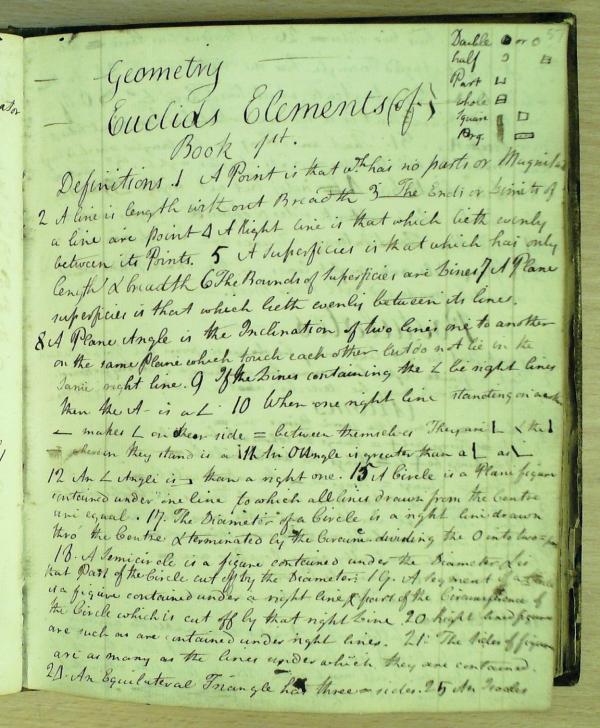 Geometry
Euclids Elements (of)
Book 1st.
Double or
half
Part
whole
Square
57
Definitions. 1 A Point is that wch has no parts or Magnitude
2 A line is length without Breadth 3 The Ends or Limits of
a line are Point 4 A Right line is that which lieth evenly
between its Points. 5 A superficies is that which has only
length & breadth 6 The Bounds of superficies are Lines 7 A Plane
superficies is that which lieth evenly between its lines.
8 A Plane Angle is the Inclination of two lines one to another
on the same Plane which touch each other but do not lie in the
same right line. 9 If the Lines containing the ∠ be right lines
then the is a 10 When one right line standing on
makes on side = between themselves They are & the
wherein they stand is a 11 An Angle is greater than a as
12 An ∠ Angle is than a right one. 15 A Circle is a Plane figure
contained under one line to which all lines drawn from the Centre
are equal. 17. The Diameter of a Circle is a right line drawn
thro' the Centre & terminated by the Circum. dividing the O into two
18. A Semicircle is a figure contained under the Diameter &
that Part of the Circle cut off by the Diameter. 19. A segment of a
is a figure contained under a right line & part of the Circumference of
the Circle which is cut off by that right line. 20 Right lined figures
are such as are contained under right lines. 21. The sides of figures
are as many as the lines under which they are contained.
24. An Equilateral Triangle has three = sides. 25 An